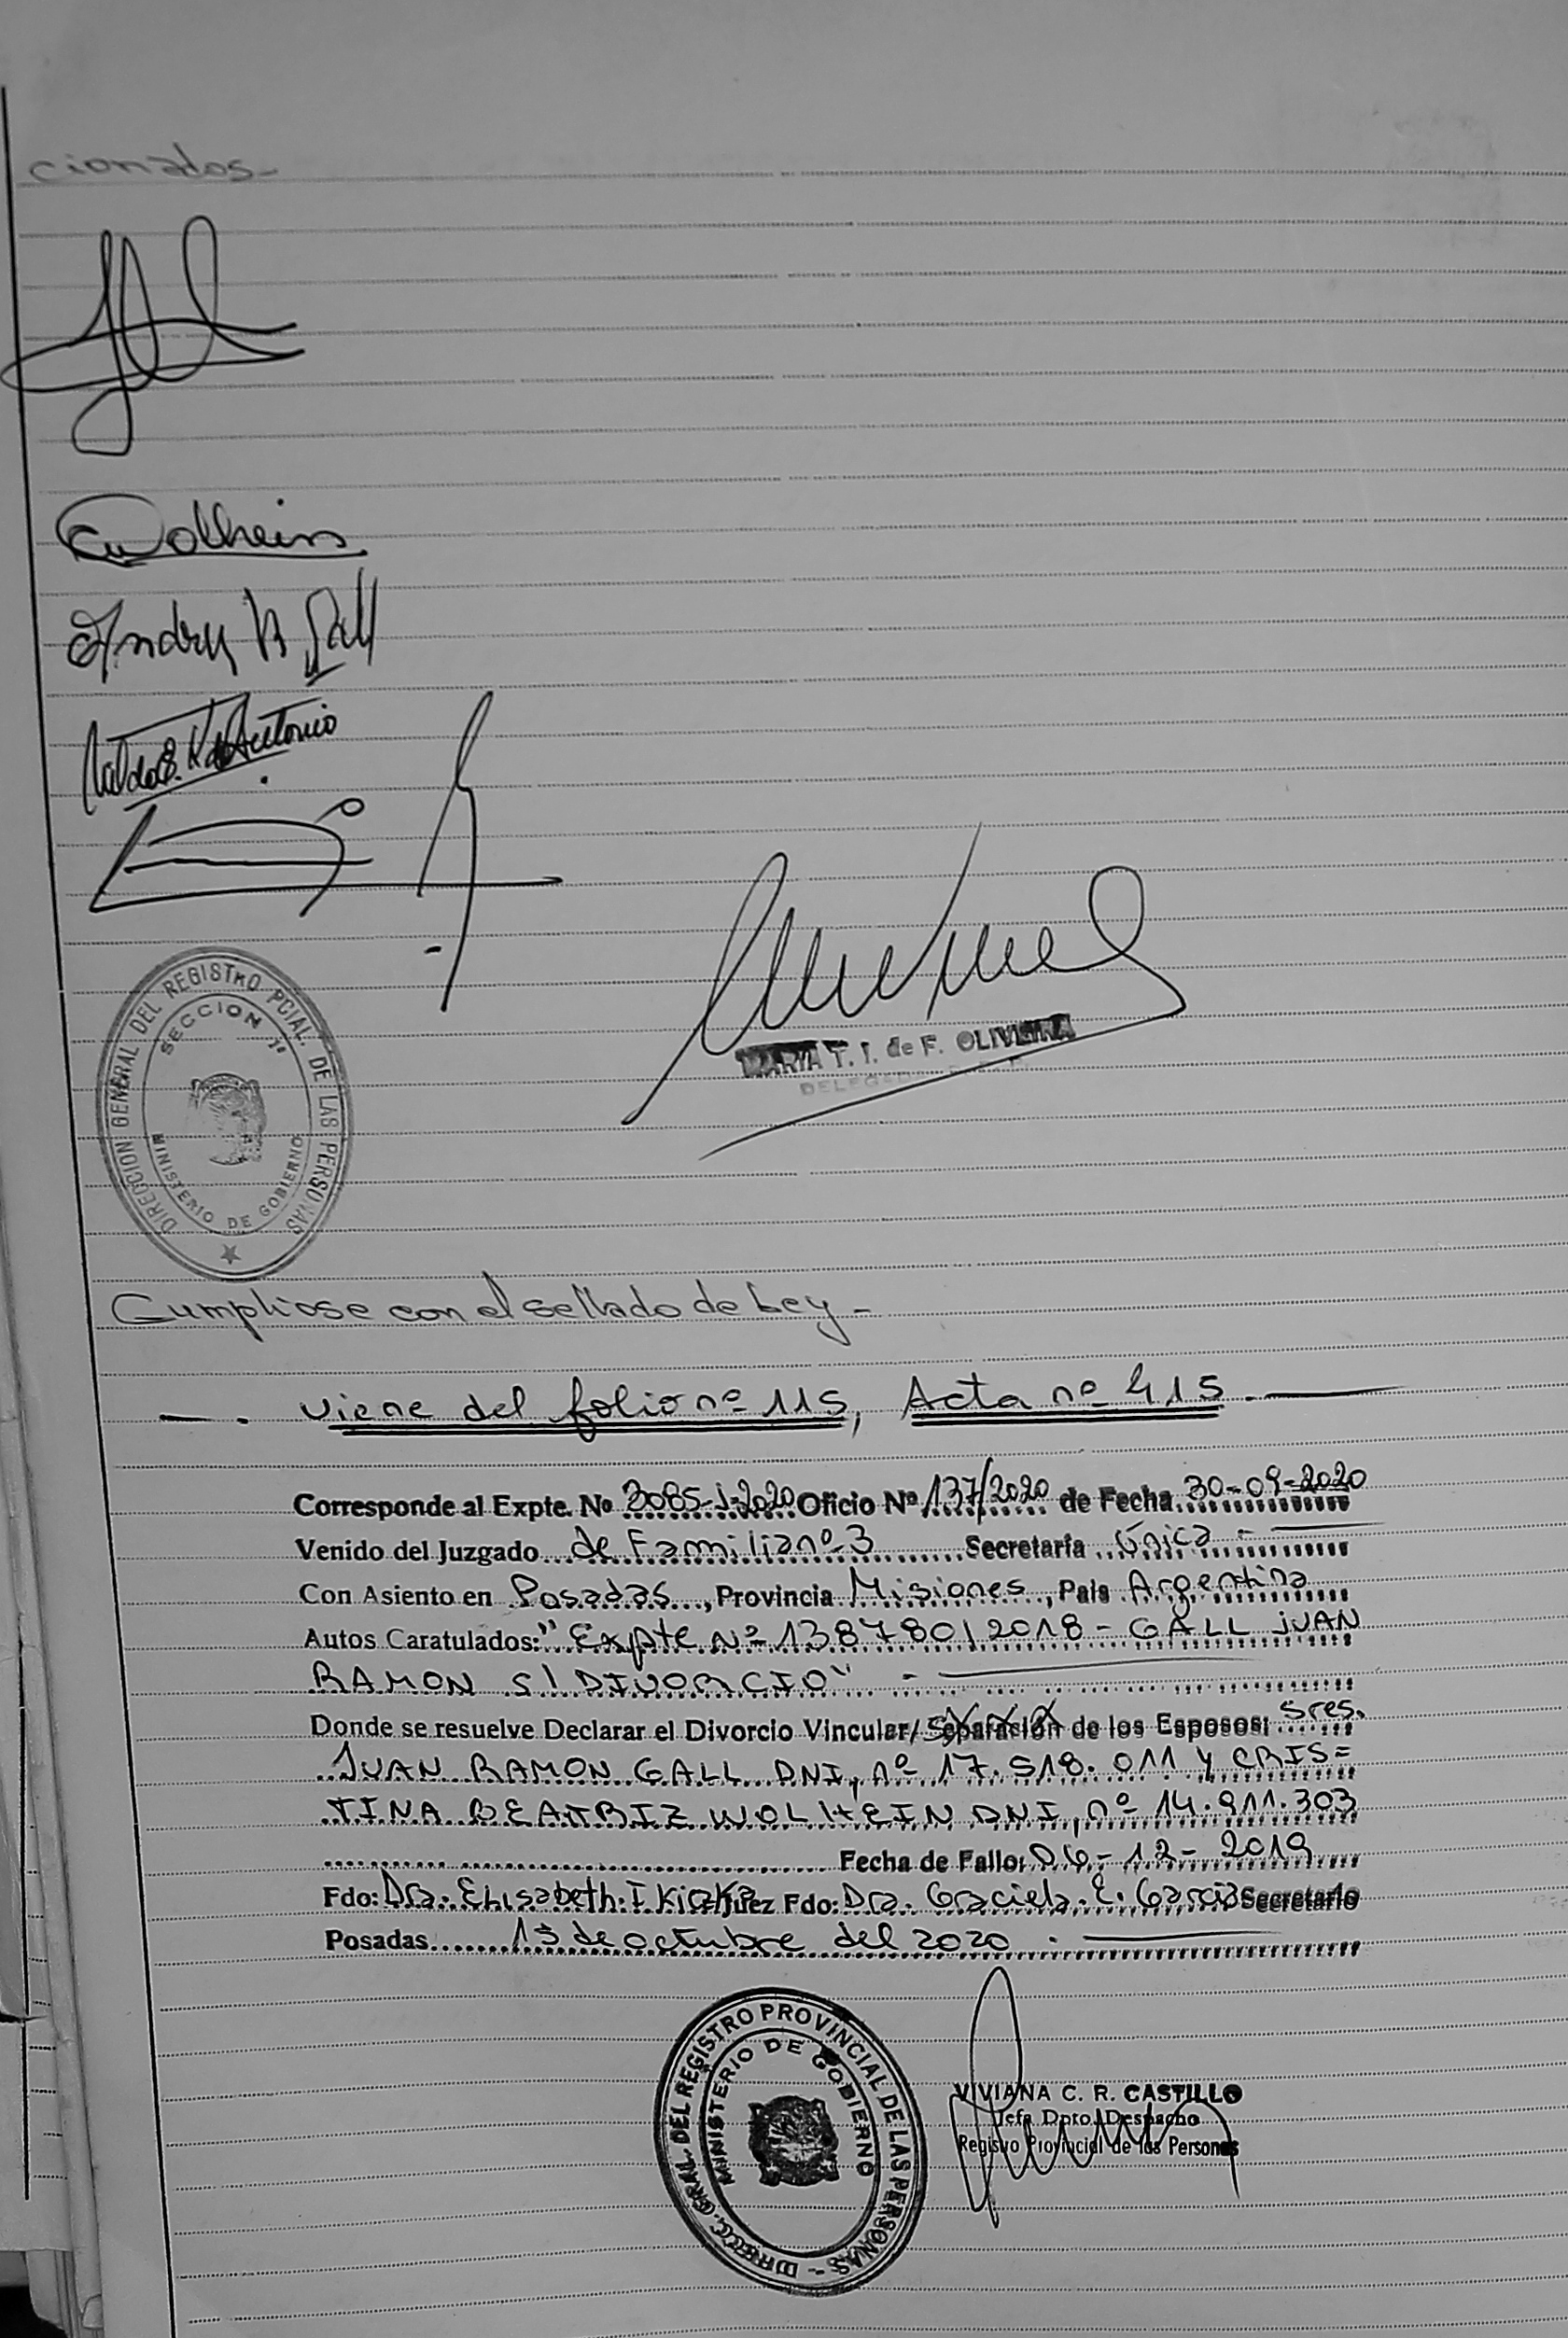 cionados-
Andry N Gall
DIRECCION GENERAL DEL REGISTRO PCIAL. DE LAS PERSONAS
SECCION 1ª
MINISTERIO DE GOBIERNO
MARIA T. I. de F. OLIVEIRA
Cumpliose con el sellado de Ley-
—. Viene del folio nº 115, Acta nº 415.—
Corresponde al Expte. Nº 3085-J-2020 Oficio Nº 137/2020 de Fecha 30-09-2020
Venido del Juzgado de Familia nº 3 Secretaría Única -
Con Asiento en Posadas, Provincia Misiones, País Argentina
Autos Caratulados: "Expte Nº 138780/2018 - GALL JUAN
RAMON S/ DIVORCIO" -
Donde se resuelve Declarar el Divorcio Vincular/Separación de los Esposos: Sres.
JUAN RAMON GALL DNI, nº 17.518.011 y CRIS=
TINA BEATRIZ WOLHEIN DNI, nº 14.911.303
Fecha de Fallo: 06-12-2019
Fdo: Dra. Elisabeth. I Juez Fdo: Dra. Graciela. E. Garcia Secretario
Posadas 13 de octubre del 2020.
DIRECC. GRAL. DEL REGISTRO PROVINCIAL DE LAS PERSONAS -
MINISTERIO DE GOBIERNO
VIVIANA C. R. CASTILLO
Jefa Dpto. Despacho
Registro Provincial de las Personas